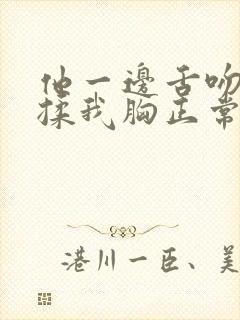 他一邊舌吻
揉我胸正常
港川一臣、美